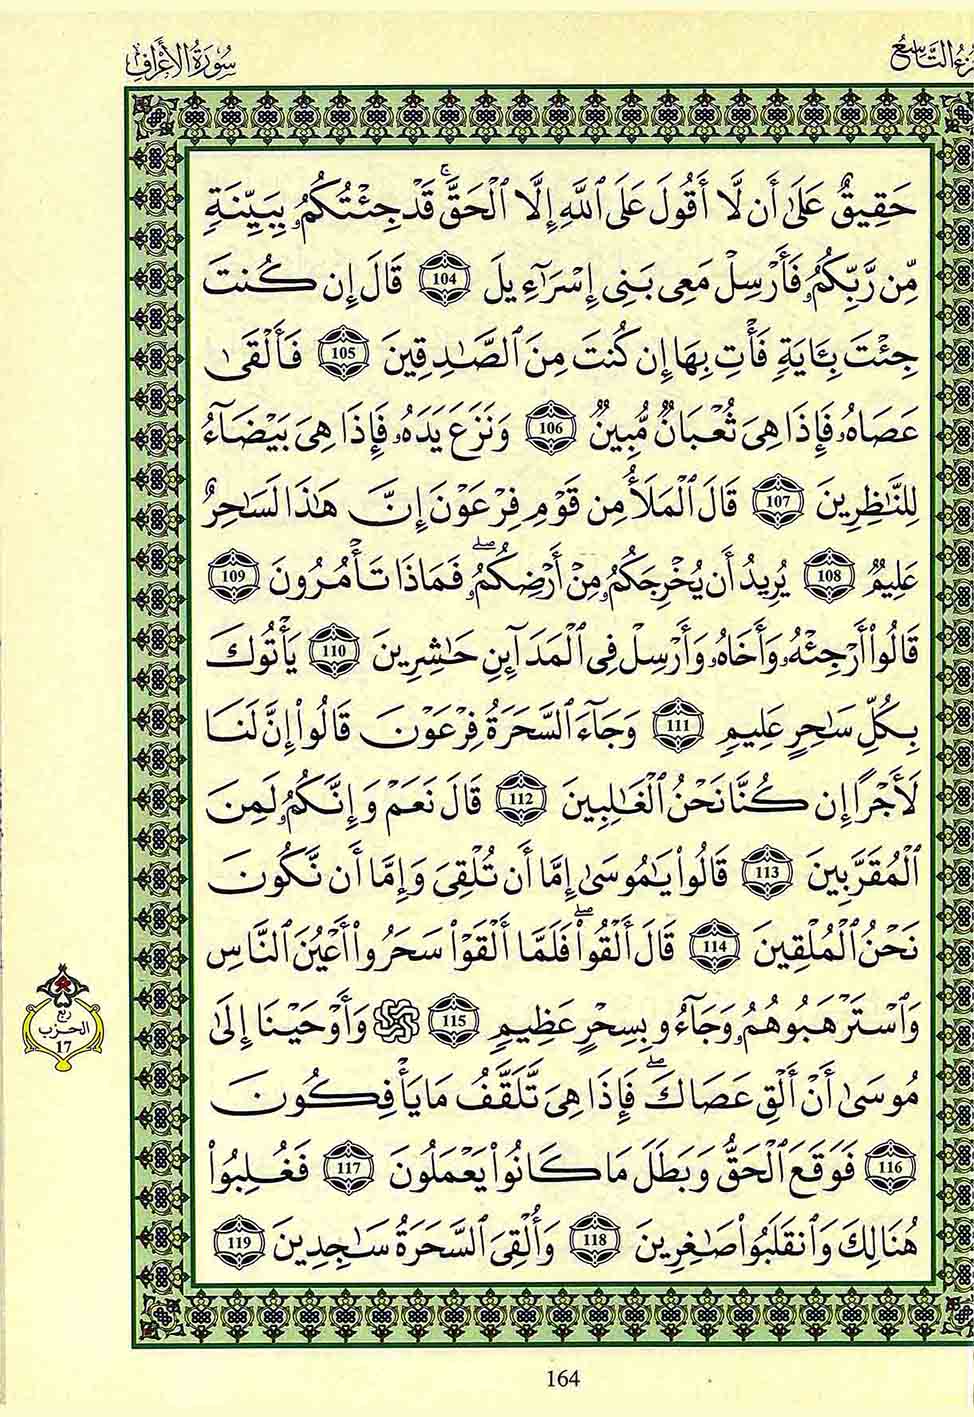 الجزء التاسع
سُورَةُ الأَعْرَافِ
حَقِيقٌ عَلَىٰ أَن لَّا أَقُولَ عَلَى ٱللَّهِ إِلَّا ٱلْحَقَّۚ قَدْ جِئْتُكُمُۥ بِبَيِّنَةٖ
مِّن رَّبِّكُمُۥ فَأَرْسِلْ مَعِى بَنِى إِسْرَآءِيلَ 104 قَالَ إِن كُنتَ
جِئْتَ بِـَٔايَةٖ فَأْتِ بِهَا إِن كُنتَ مِنَ ٱلصَّٰدِقِينَ 105 فَأَلْقَىٰ
عَصَاهُۥ فَإِذَا هِىَ ثُعْبَانٌ مُّبِينٌ 106 وَنَزَعَ يَدَهُۥ فَإِذَا هِىَ بَيْضَآءُ
لِلنَّٰظِرِينَ 107 قَالَ ٱلْمَلَأُ مِن قَوْمِ فِرْعَوْنَ إِنَّ هَٰذَا لَسَٰحِرٌ
عَلِيمٌ 108 يُرِيدُ أَن يُخْرِجَكُمُۥ مِنْ أَرْضِكُمُۥۖ فَمَاذَا تَأْمُرُونَ 109
قَالُوا۟ أَرْجِئْهُۥ وَأَخَاهُۥ وَأَرْسِلْ فِى ٱلْمَدَآئِنِ حَٰشِرِينَ 110 يَأْتُوكَ
بِكُلِّ سَٰحِرٍ عَلِيمٖ 111 وَجَآءَ ٱلسَّحَرَةُ فِرْعَوْنَ قَالُوا۟ إِنَّ لَنَا
لَأَجْرًا إِن كُنَّا نَحْنُ ٱلْغَٰلِبِينَ 112 قَالَ نَعَمْ وَإِنَّكُمُۥ لَمِنَ
ٱلْمُقَرَّبِينَ 113 قَالُوا۟ يَٰمُوسَىٰ إِمَّا أَن تُلْقِىَ وَإِمَّا أَن نَّكُونَ
نَحْنُ ٱلْمُلْقِينَ 114 قَالَ أَلْقُوا۟ۖ فَلَمَّا أَلْقَوْا۟ سَحَرُوا۟ أَعْيُنَ ٱلنَّاسِ
وَٱسْتَرْهَبُوهُمُۥ وَجَآءُو بِسِحْرٍ عَظِيمٖ 115 وَأَوْحَيْنَا إِلَىٰ
مُوسَىٰ أَنْ أَلْقِ عَصَاكَۖ فَإِذَا هِىَ تَّلَقَّفُ مَا يَأْفِكُونَ
116 فَوَقَعَ ٱلْحَقُّ وَبَطَلَ مَا كَانُوا۟ يَعْمَلُونَ 117 فَغُلِبُوا۟
هُنَالِكَ وَٱنقَلَبُوا۟ صَٰغِرِينَ 118 وَأُلْقِىَ ٱلسَّحَرَةُ سَٰجِدِينَ 119
ربع
الحزب
17
164